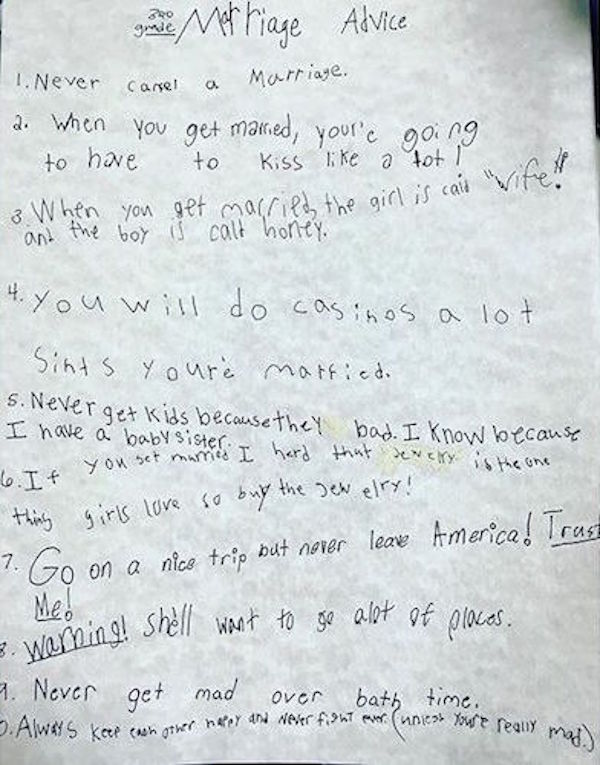 3RD grade Marriage Advice
1. Never cansel a Marriage.
2. When you get married, your'e going
to have to Kiss like a lot!
3. When you get married, the girl is calt "wife!"
and the boy is calt honey.
4. You will do casinos a lot
Sints youre married.
5. Never get kids because they bad. I know because
I have a baby sister.
6. If you get married I herd that jewelry is the one
thing girls love so buy the jewelry!
7. Go on a nice trip but never leave America! Trust
Me!
8. Warning! she'll want to go alot of places.
9. Never get mad over bath time.
0. Always keep each other happy and never fight ever. (unless you're really mad.)